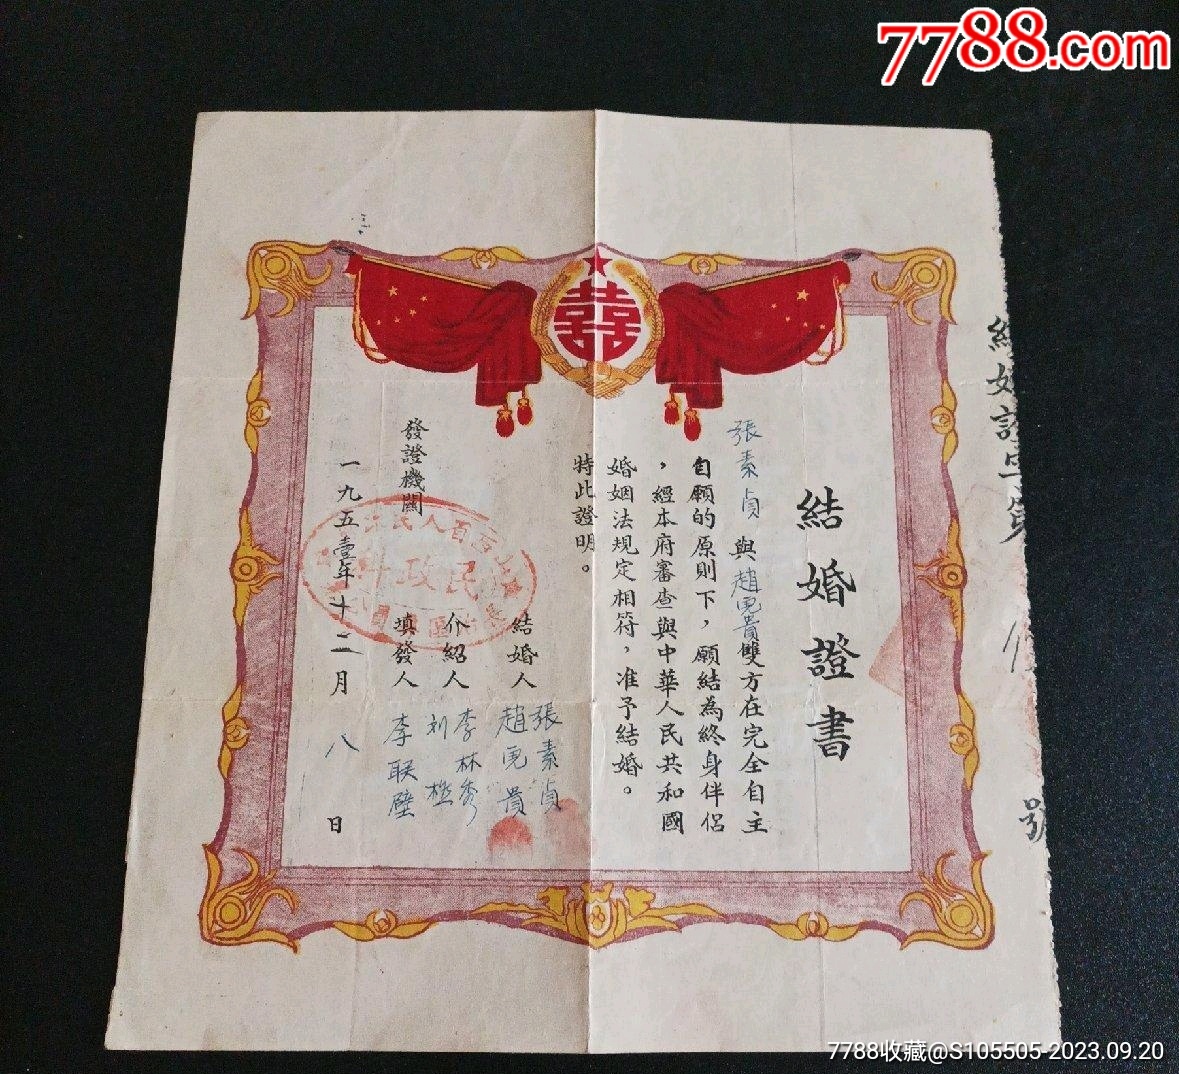 7788.com
囍
結婚證書
張素貞與趙更貴雙方在完全自主
自願的原則下，願結為終身伴侶
，經本府審查與中華人民共和國
婚姻法規定相符，准予結婚。
特此證明。
結婚人 張素貞
趙更貴
介紹人 李林秀
刘
填發人 李联璧
發證機關
民政
一九五壹年十二月八日
結婚證字第
號
7788收藏@S105505-2023.09.20